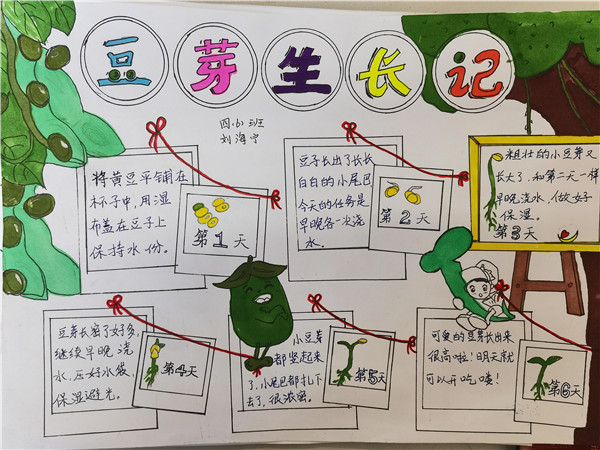 豆芽生长记
四.6)班
刘海宁
将黄豆平铺在
杯子中,用湿
布盖在豆子上
保持水份。
第1天
豆子长出了长长
白白的小尾巴
今天的任务是
早晚各一次浇
水。
第2天
粗壮的小豆芽又
长大了.和第二天一样
早晚浇水,做好
保湿。
第3天
豆芽长密了好多,
继续早晚浇
水,压好水袋,
保湿避光。
第4天
小豆芽
都竖起来
了,小尾巴都扎下
去了,很浓密。
第5天
可爱的豆芽长出来
很高啦!明天就
可以开吃喽!
第6天